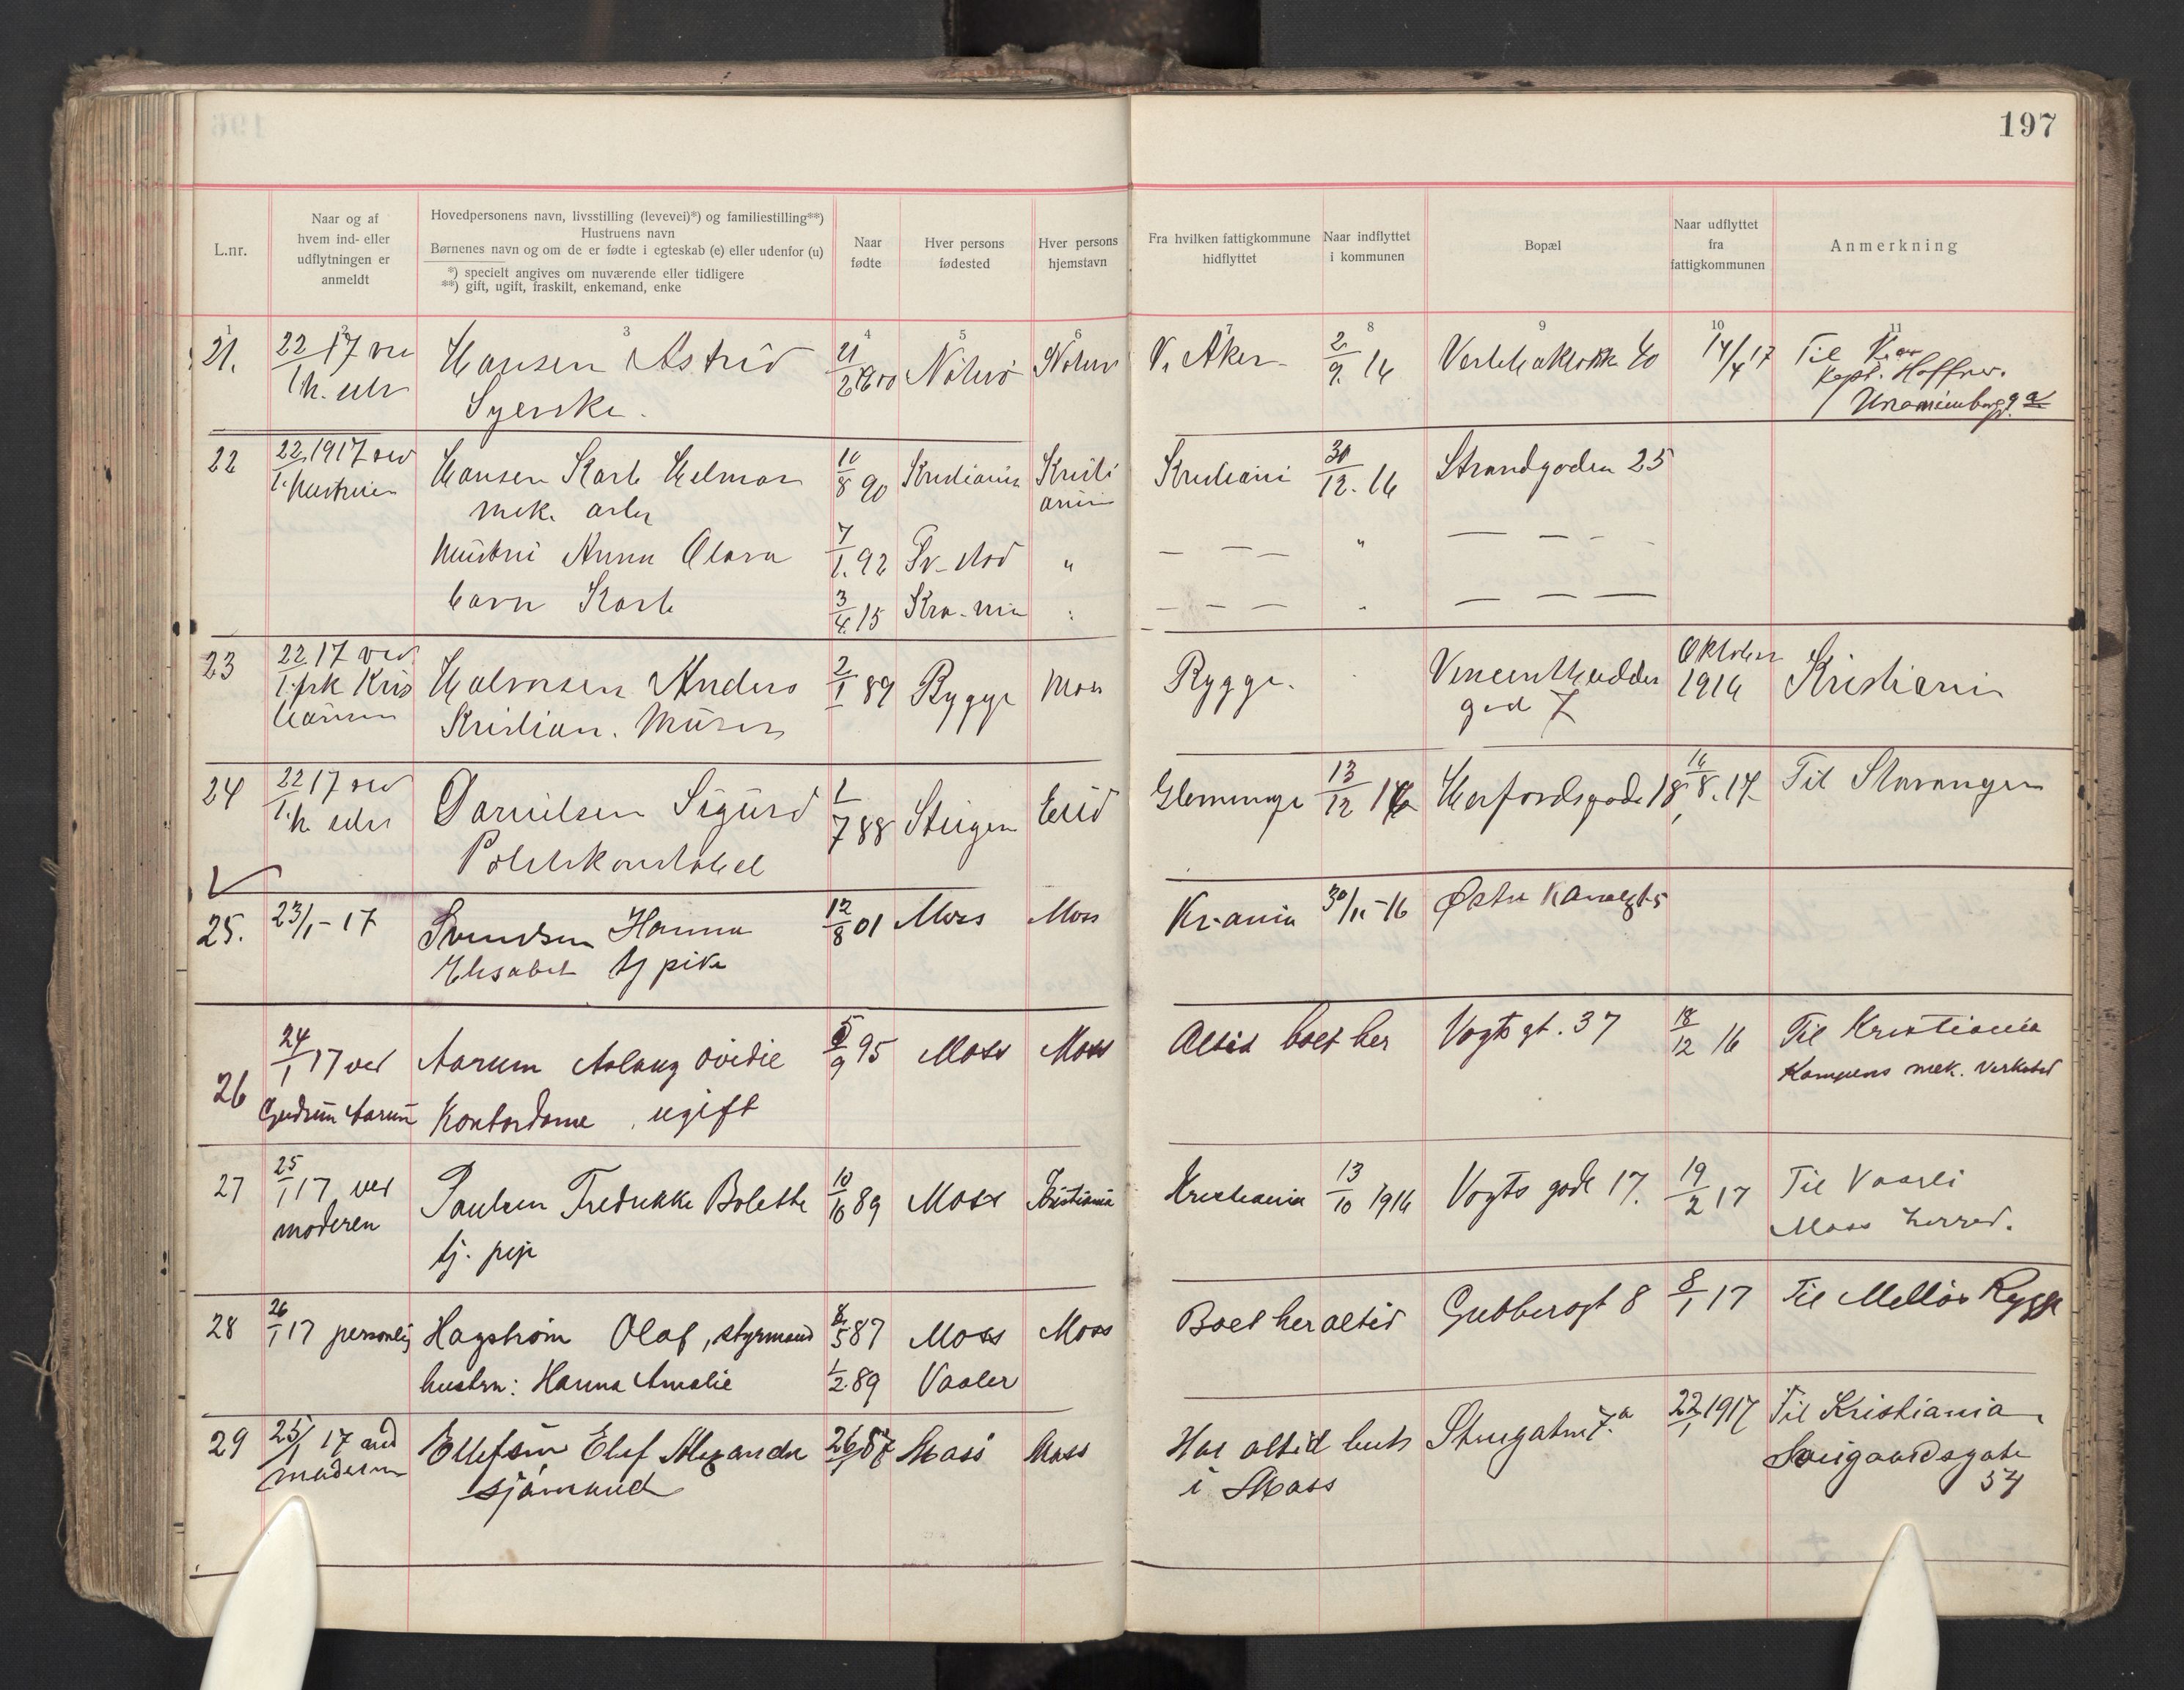 197
L.nr.
Naar og af
hvem ind- eller
udflytningen er
anmeldt
Hovedpersonens navn, livsstilling (levevei)*) og familiestilling**)
Hustruens navn
Børnenes navn og om de er fødte i egteskab (e) eller udenfor (u)
*) specielt angives om nuværende eller tidligere
**) gift, ugift, fraskilt, enkemand, enke
Naar
fødte
Hver persons
fødested
Hver persons
hjemstavn
Fra hvilken fattigkommune
hidflyttet
Naar indflyttet
i kommunen
Bopæl
Naar udflyttet
fra
fattigkommunen
Anmerkning
1 2 3 4 5 6 7 8 9 10 11
21. 22/1 17 Hansen Astrid 21/2 1900 V. Aker 2/9. 16 40 14/4 17 Til
Syerske. Kapt. Hoffner.
22 22/1 1917 ved Hansen Karl Helmar 10/8 90 Kristiania Kristi Kristiani 30/12. 16 Strandgaden 25
hustruen mek. arb. ania
hustru Anna Clara 7/1. 92 " — — — " — — —
barn Karl 3/4 15 Kra-nia — — — — — —
23 22/1 17 ved Halvorsen Anders 2/1 89 Rygge Moss Rygge. Oktober
frk Kris Kristian. Murer gad 7 1916 Kristiania
Hansen
24 22/1 17 ved Danielsen Sigurd 1/7 88 Eid Glemminge 13/12 16 Herfordsgade 18, 16/8. 17 Til Stavanger
Politikonstabel
25. 23/1 - 17 Svendsen Hanna 12/8 01 Moss Moss Kr-ania 30/11 -16 Østre Kanalgt 5
Elisabet tj pike
26 24/1 17 ved Aarum Aslaug Ovidie 5/9 95 Moss Moss Altid boet her Vogts gt. 37 18/12 16 Til Kristiania
Gudrun Aarum Kontordame, ugift Kampens mek. Verksted
27 25/1 17 ved Paulsen Fredrikke Bolette 10/10 89 Moss Kristiania Kristiania 13/10 1916 Vogts gade 17. 19/2 17 Til Vaarli
moderen tj. pige Moss herred.
28 26/1 17 personlig Hagstrøm Olaf, styrmand 8/5 87 Moss Moss Boet her altid Gudbergt 8 8/1 17 Til Melløs Rygge
hustru: Hanna Amalie 1/2 89 Vaaler
29 25/1 17 ved Ellefsen Elef Alexander 26/1 87 Moss Moss Har altid bott 7.a 22/1 1917 Til Kristiania
moderen sjømand i Moss Sougaardsgate
54